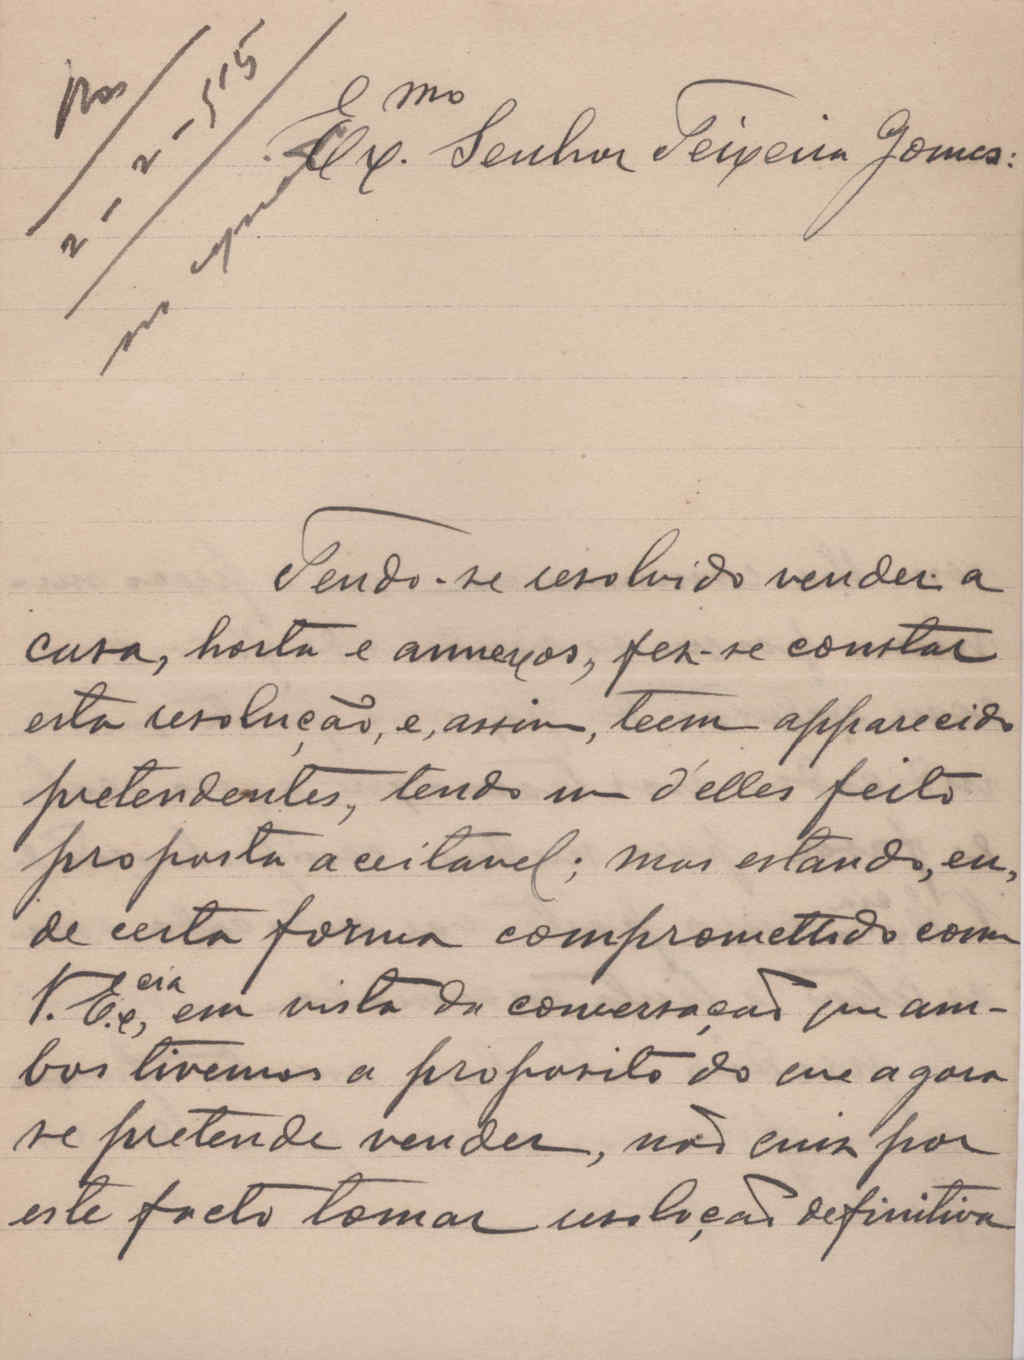 2-2-915
Ex.mo Senhor Teixeira Gomes:
Tendo-se resolvido vender a
casa, horta e annexos, fez-se constar
esta resolução, e, assim, teem apparecido
pretendentes, tendo um d'elles feito
proposta aceitavel; mas estando, eu,
de certa forma compromettido com
V. Ex.cia, em vista da conversação que am-
bos tivemos a proposito do que agora
se pretende vender, não quiz por
este facto tomar resolução definitiva